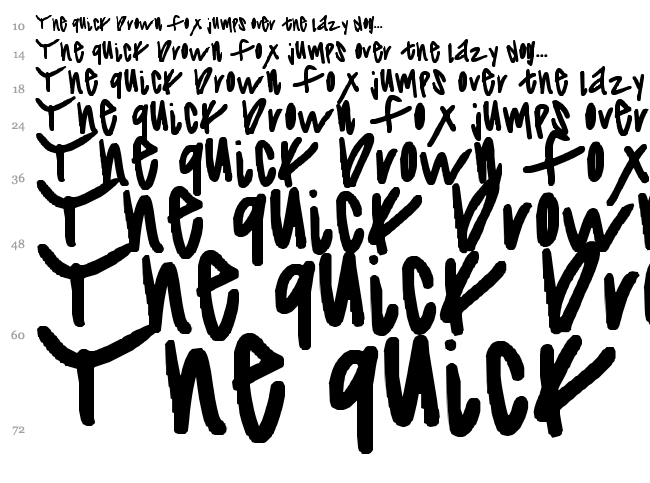 10 The quick brown fox jumps over the lazy dog...
14 The quick brown fox jumps over the lazy dog...
18 The quick brown fox jumps over the lazy
24 The quick brown fox jumps over
36 The quick brown fox
48 The quick brown
60 The quick bro
72 The quick